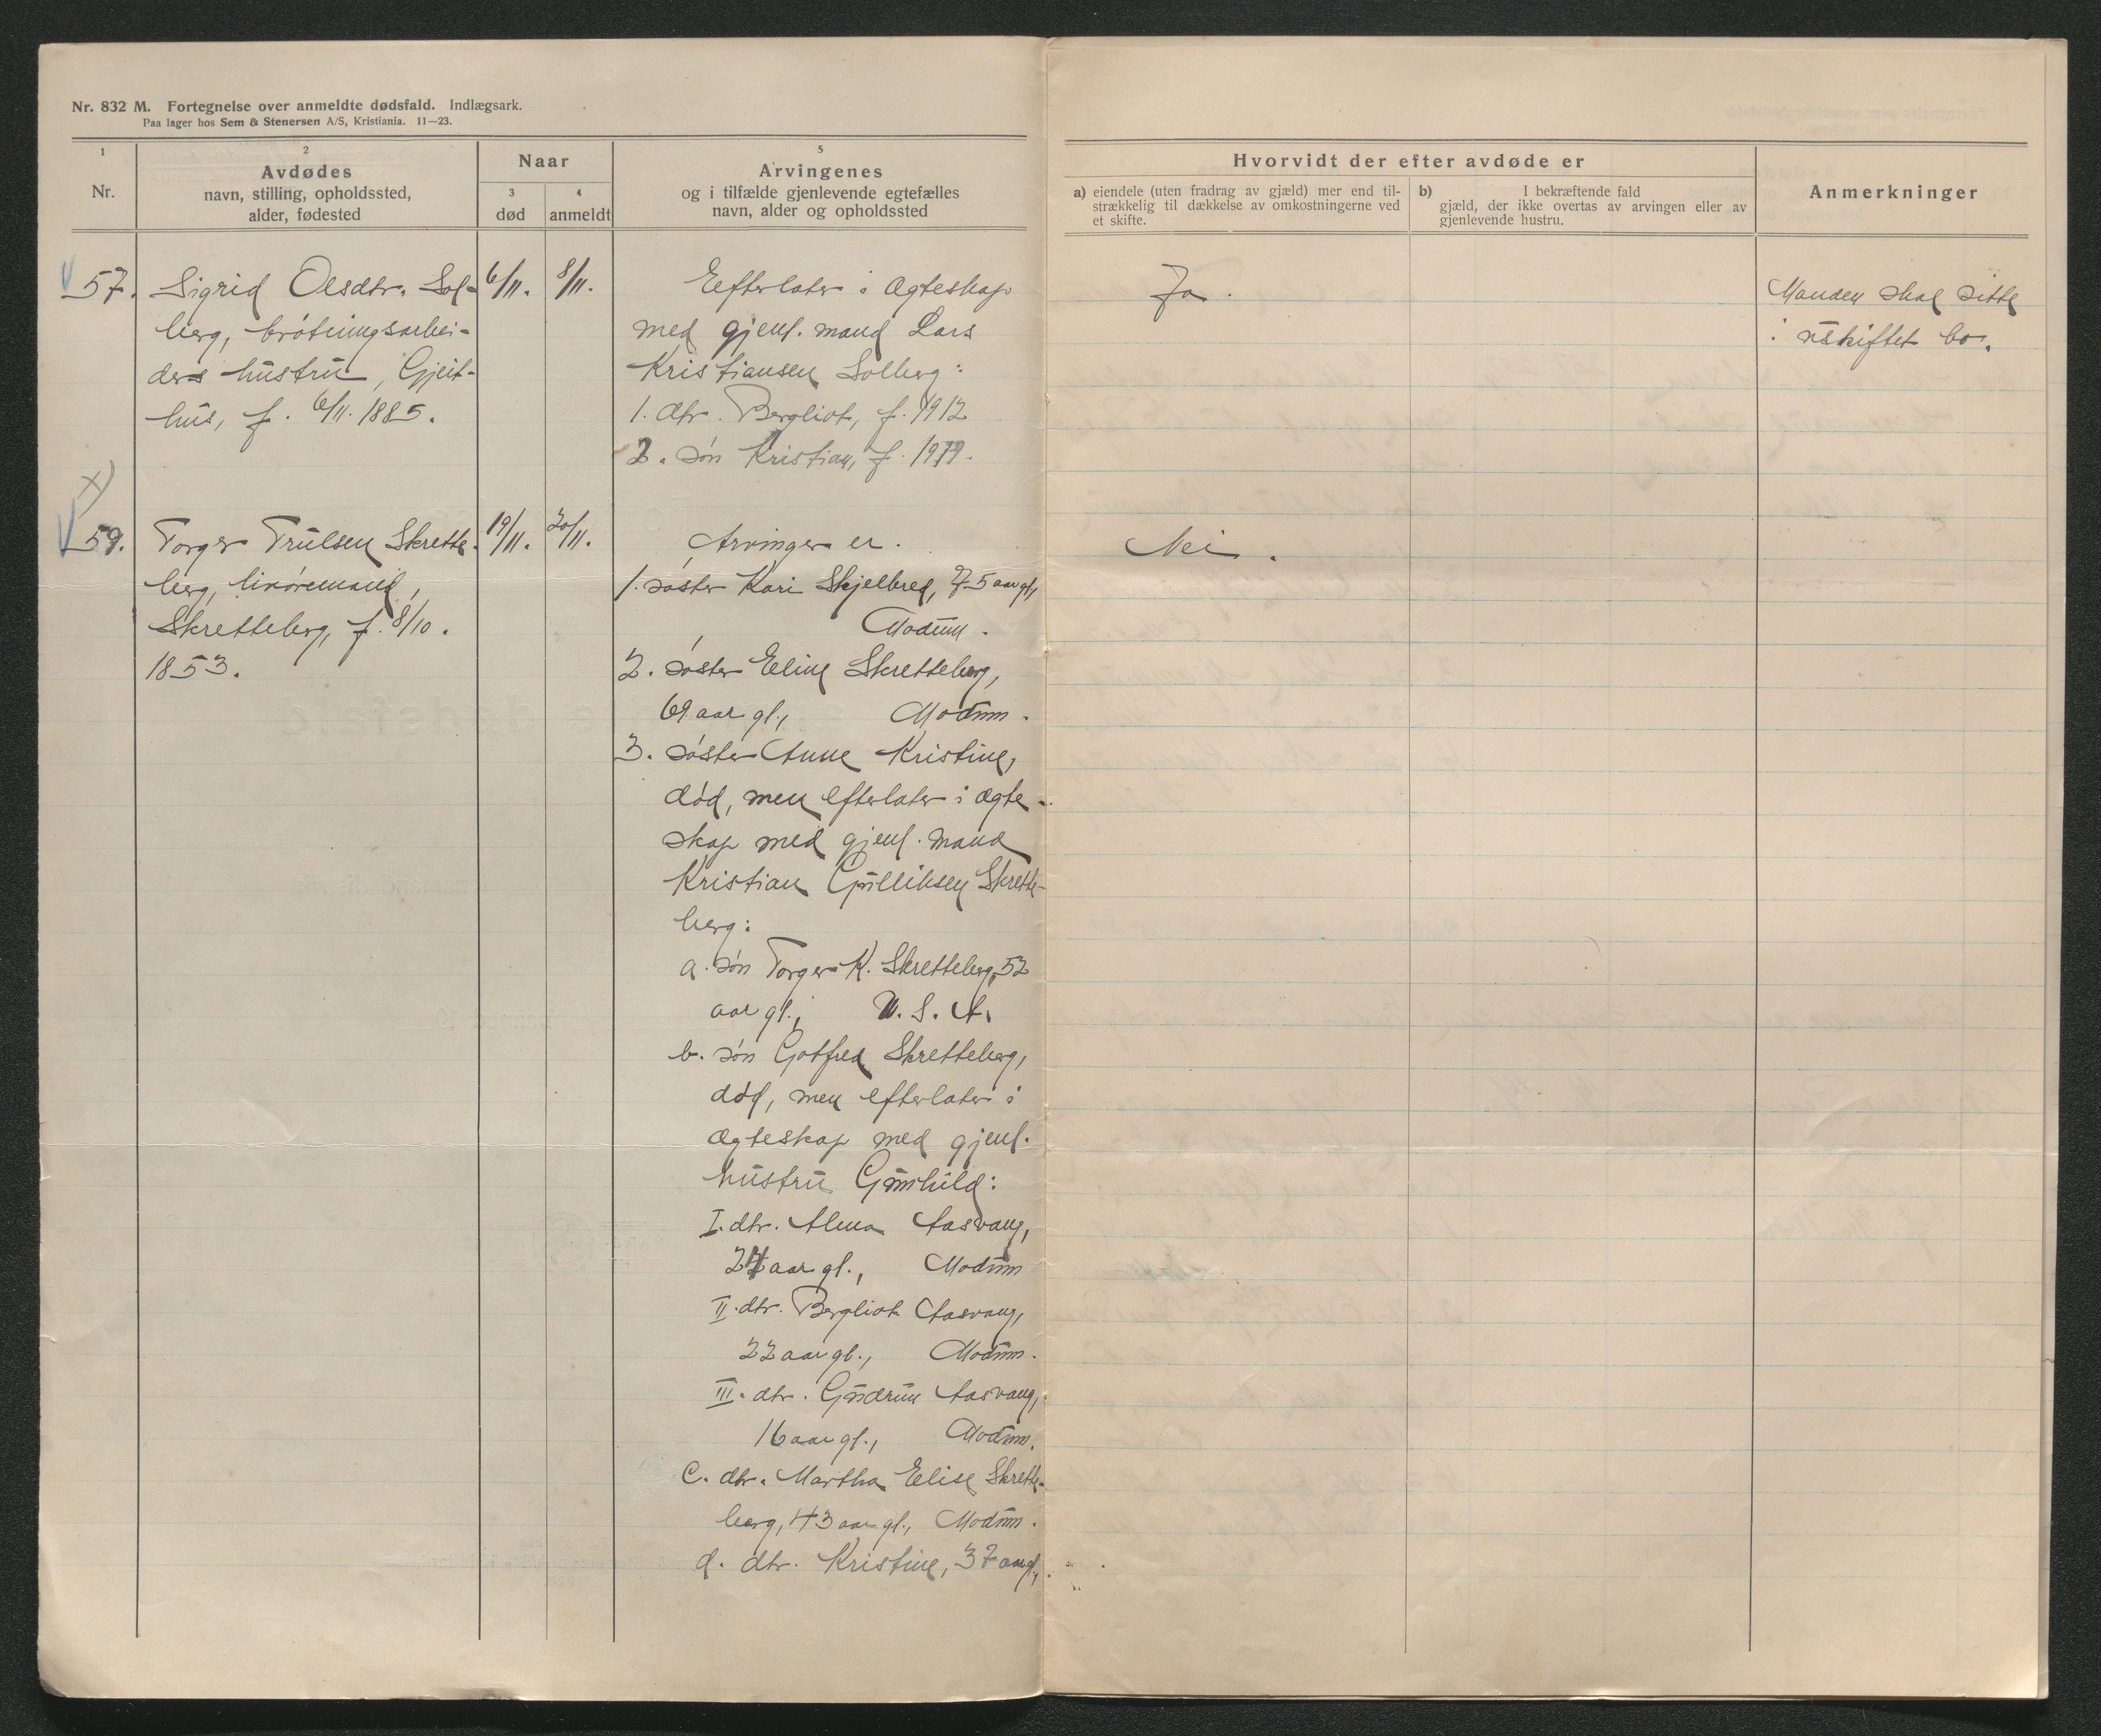 Nr. 832 M. Fortegnelse over anmeldte dødsfald. Indlægsark.
Paa lager hos Sem & Stenersen A/S, Kristiania. 11—23.
1
Nr.
2
Avdødes
navn, stilling, opholdssted,
alder, fødested
Naar
3
død
4
anmeldt
5
Arvingenes
og i tilfælde gjenlevende egtefælles
navn, alder og opholdssted
Hvorvidt der efter avdøde er
a) eiendele (uten fradrag av gjæld) mer end til-
strækkelig til dækkelse av omkostningerne ved
et skifte.
b) I bekræftende fald
gjæld, der ikke overtas av arvingen eller av
gjenlevende hustru.
Anmerkninger
57.
Sigrid Olsdtr. Sol-
berg, brøtningsarbei-
ders hustru, Gjeit-
hus, f. 6/11. 1885.
6/11.
8/11.
Eefterlater i ægteskap
med gjenl. mand Lars
Kristiansen Solberg:
1. dtr. Bergliot, f. 1912
2. søn Kristian, f.
Ja.
Manden skal sitte
i uskiftet bo.
x)
59.
Torger Trulsen Skrette-
berg,
Skretteberg, f. 8/10.
1853.
19/11.
20/11.
Arvinger er.
1. søster Kari Skjelbred, 75 aar gl.,
Modum.
2. søster Eline Skretteberg,
69 aar gl., Modum.
3. søster Anne Kristine,
død, men efterlater i ægte-
skap med gjenl. mand
Kristian Gulliksen Skrette-
berg:
a. søn Torger K. Skretteberg, 52
aar gl., U. S. A.
b. søn Gotfred Skretteberg,
død, men efterlater i
ægteskap med gjenl.
hustru Gunhild:
I. dtr. Alma Aasvang,
24 aar gl., Modum
II. dtr. Bergliot Aasvang,
22 aar gl., Modum.
III. dtr. Gudrun Aasvang,
16 aar gl., Modum.
c. dtr. Martha Elise Skrette-
berg, 43 aar gl., Modum.
d. dtr. Kristine, 37 aar gl.,
Nei.